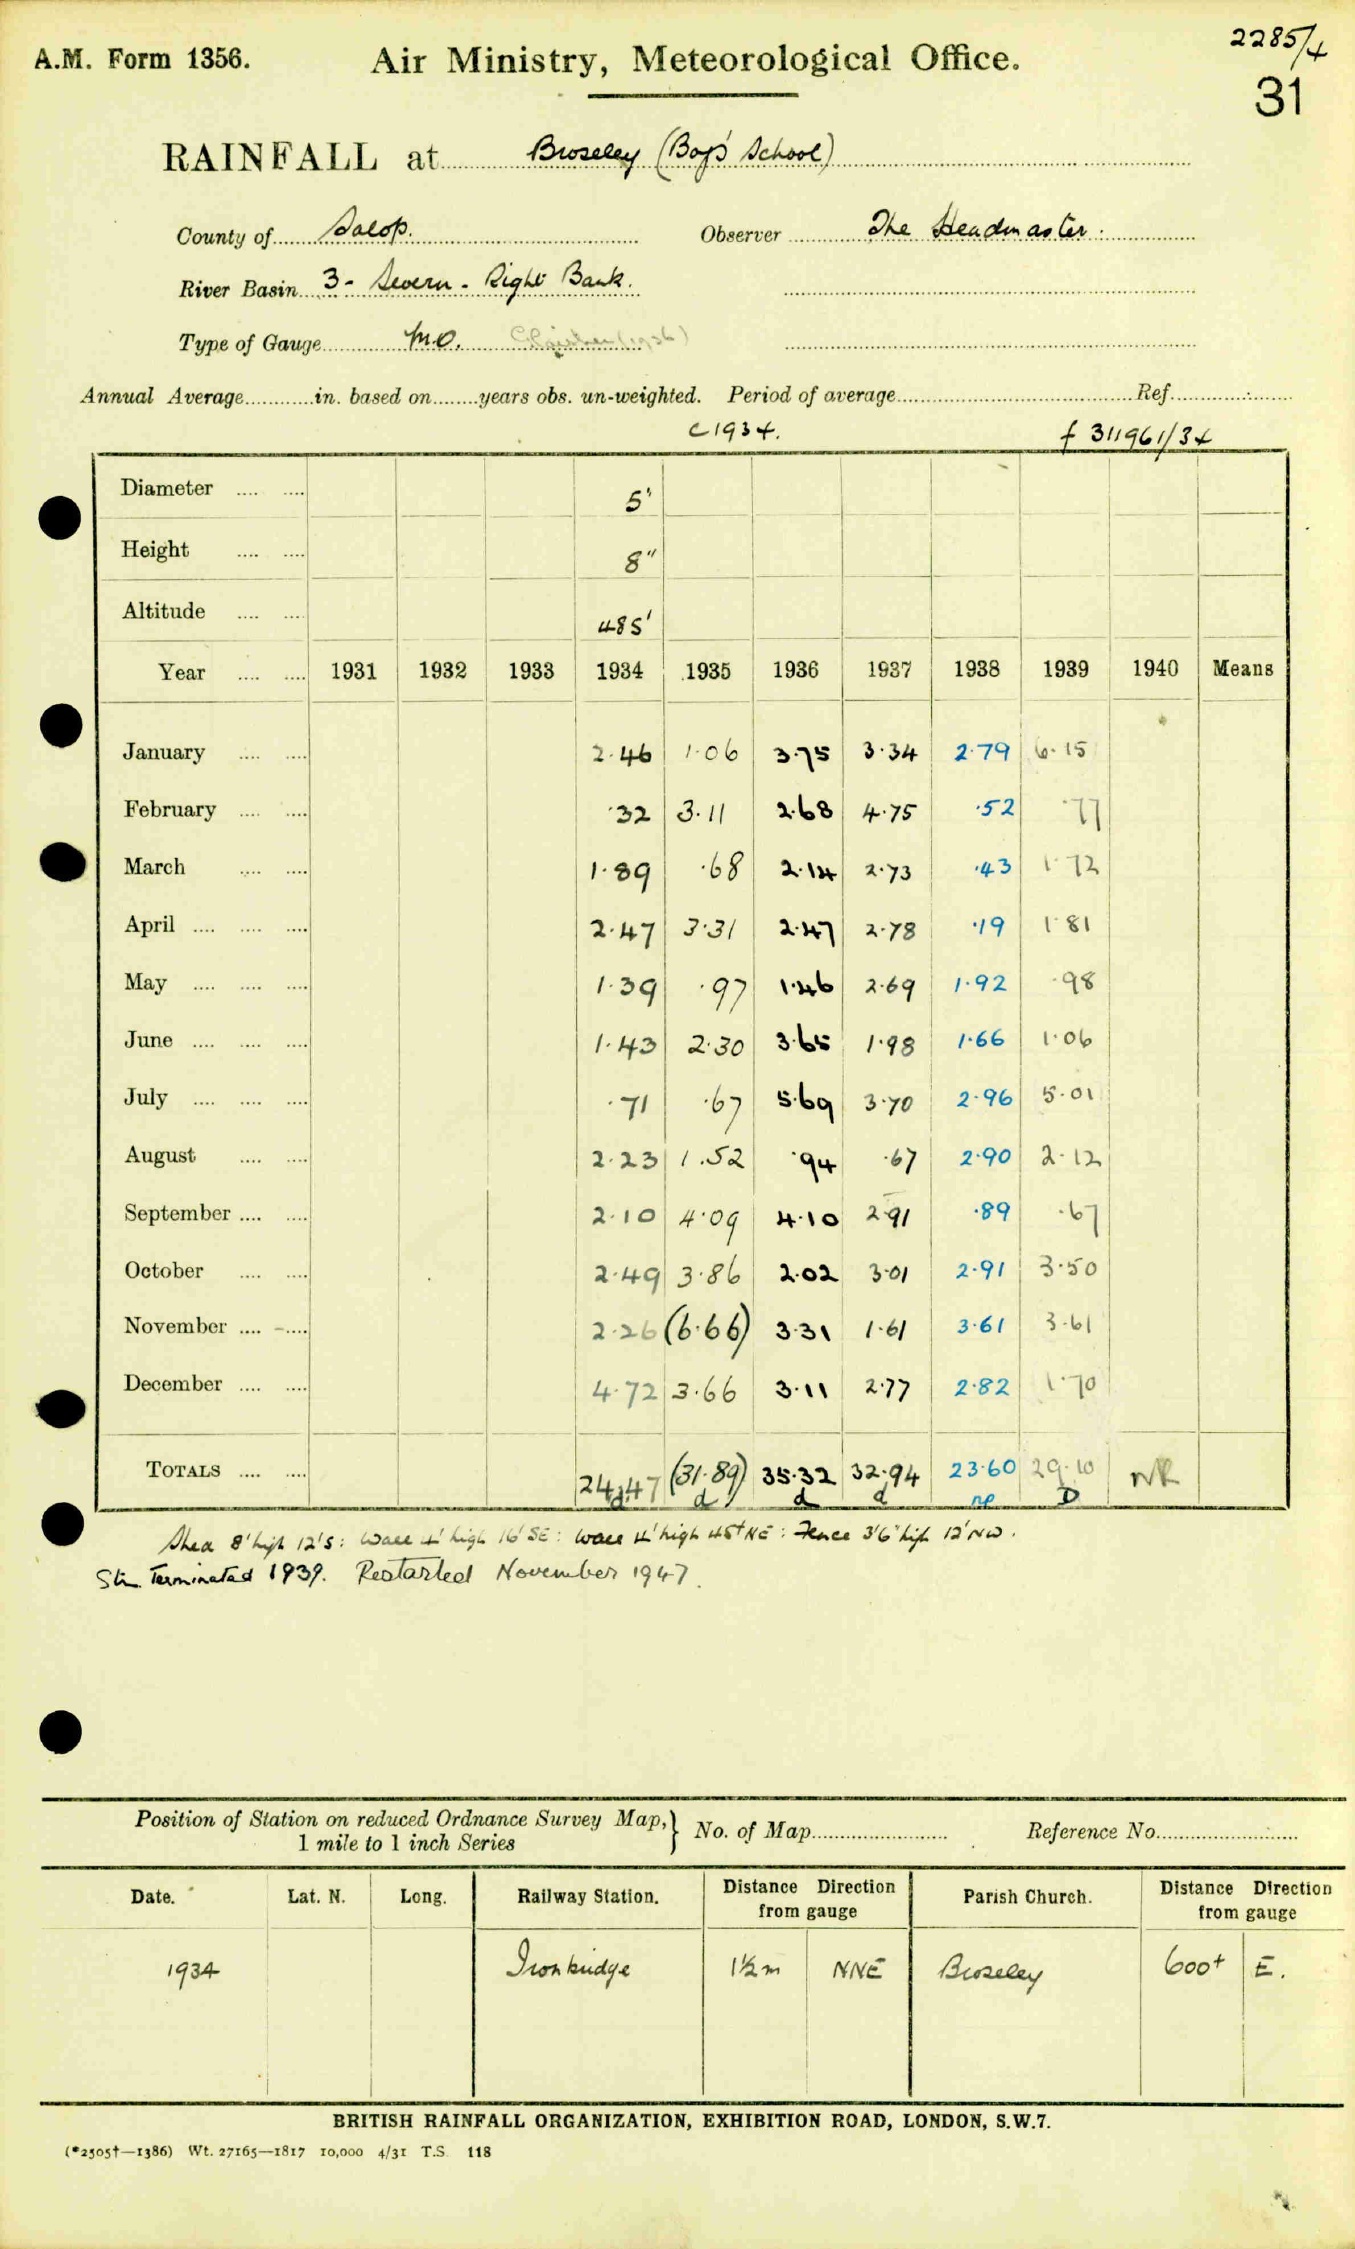 2285/4
A.M. Form 1356. Air Ministry, Meteorological Office.
31
RAINFALL at Broseley (Boys' School)
County of Salop. Observer The Headmaster.
River Basin 3 - Severn - Right Bank.
Type of Gauge M.O. (1936)
Annual Average in. based on years obs. un-weighted. Period of average Ref.
c1934. f 311961/34
Diameter 5"
Height 8"
Altitude 485'
Year 1931 1932 1933 1934 1935 1936 1937 1938 1939 1940 Means
January 2.46 1.06 3.75 3.34 2.79 6.15
February .32 3.11 2.68 4.75 .52 .77
March 1.89 .68 2.14 2.73 .43 1.72
April 2.47 3.31 2.47 2.78 .19 1.81
May 1.39 .97 1.46 2.69 1.92 .98
June 1.43 2.30 3.65 1.98 1.66 1.06
July .71 .67 5.69 3.70 2.96 5.01
August 2.23 1.52 .94 .67 2.90 2.12
September 2.10 4.09 4.10 2.91 .89 .67
October 2.49 3.86 2.02 3.01 2.91 3.50
November 2.26 (6.66) 3.31 1.61 3.61 3.61
December 4.72 3.66 3.11 2.77 2.82 1.70
TOTALS 24.47 (31.89) 35.32 32.94 23.60 29.10 NR
d d d d np D
Shed 8' high 12' S: Wall 4' high 16' SE: Wall 4' high 45+ NE: Fence 3'6" high 12' NW.
Stn. Terminated 1939. Restarted November 1947.
Position of Station on reduced Ordnance Survey Map, 1 mile to 1 inch Series } No. of Map Reference No.
Date. Lat. N. Long. Railway Station. Distance Direction from gauge Parish Church. Distance Direction from gauge
1934 Ironbridge 1½m NNE Broseley 600+ E.
BRITISH RAINFALL ORGANIZATION, EXHIBITION ROAD, LONDON, S.W.7.
(*2505†—1386) Wt. 27165—1817 10,000 4/31 T.S. 118